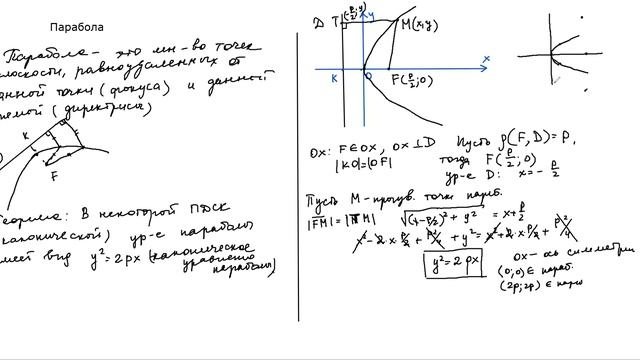 Парабола
Парабола - это мн-во точек
плоскости, равноудаленных от
данной точки (фокуса) и данной
прямой (директрисы)
K
F
Теорема: В некоторой ПДСК
(канонической) ур-е параболы
имеет вид y²=2px (каноническое
уравнение
параболы)
D T (-p/2; y) y M(x,y)
x
K O F(p/2; 0)
Ox: F∈OX, OX⊥D Пусть ρ(F,D)=P,
|KO|=|OF| тогда F(p/2; 0)
ур-е D: x=-p/2
Пусть M - произв. точка параб.
|FM|=|TM| √(x-p/2)²+y² = x+p/2
x²-2·x·p/2+p²/4+y²=x²+2·x·p/2+p²/4
y²=2px
OX - ось симметрии
(0;0)∈ параб.
(2p;2p)∈ параб